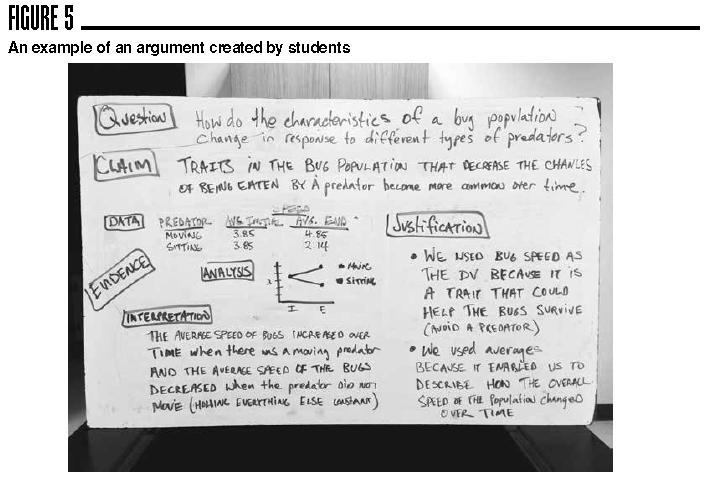 FIGURE 5
An example of an argument created by students
Question
How do the characteristics of a bug population
change in response to different types of predators?
CLAIM
TRAITS IN THE BUG POPULATION THAT DECREASE THE CHANCES
OF BEING EATEN BY A predator become more common over time.
DATA
SPEED
PREDATOR AVG INITIAL AVG. END
MOVING 3.85 4.85
SITTING 3.85 2.14
EVIDENCE
ANALYSIS
MOVING
SITTING
I E
INTERPRETATION
THE AVERAGE SPEED OF BUGS INCREASED OVER
TIME when there was a moving predator
AND THE AVERAGE SPEED OF THE BUGS
DECREASED when the predator DID NOT
MOVE (HOLDING EVERYTHING ELSE CONSTANT)
Justification
• WE USED BUG SPEED AS
THE DV BECAUSE IT IS
A TRAIT THAT COULD
HELP THE BUGS SURVIVE
(AVOID A PREDATOR)
• We used averages
BECAUSE IT ENABLED US TO
DESCRIBE HOW THE OVERALL
SPEED OF THE Population changed
OVER TIME